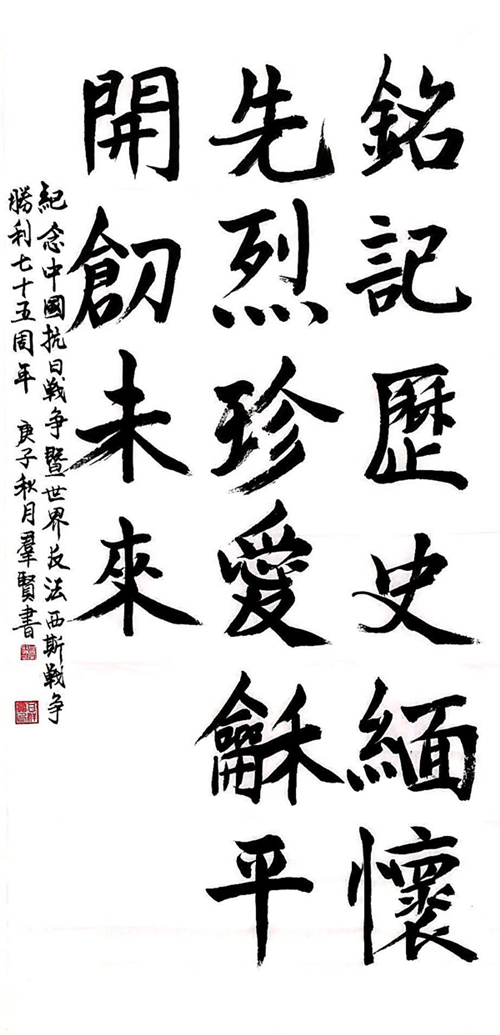 銘記歷史緬懷
先烈珍愛龢平
開創未來
紀念中國抗日戰争暨世界反法西斯戰争
勝利七十五周年 庚子秋月羣賢書